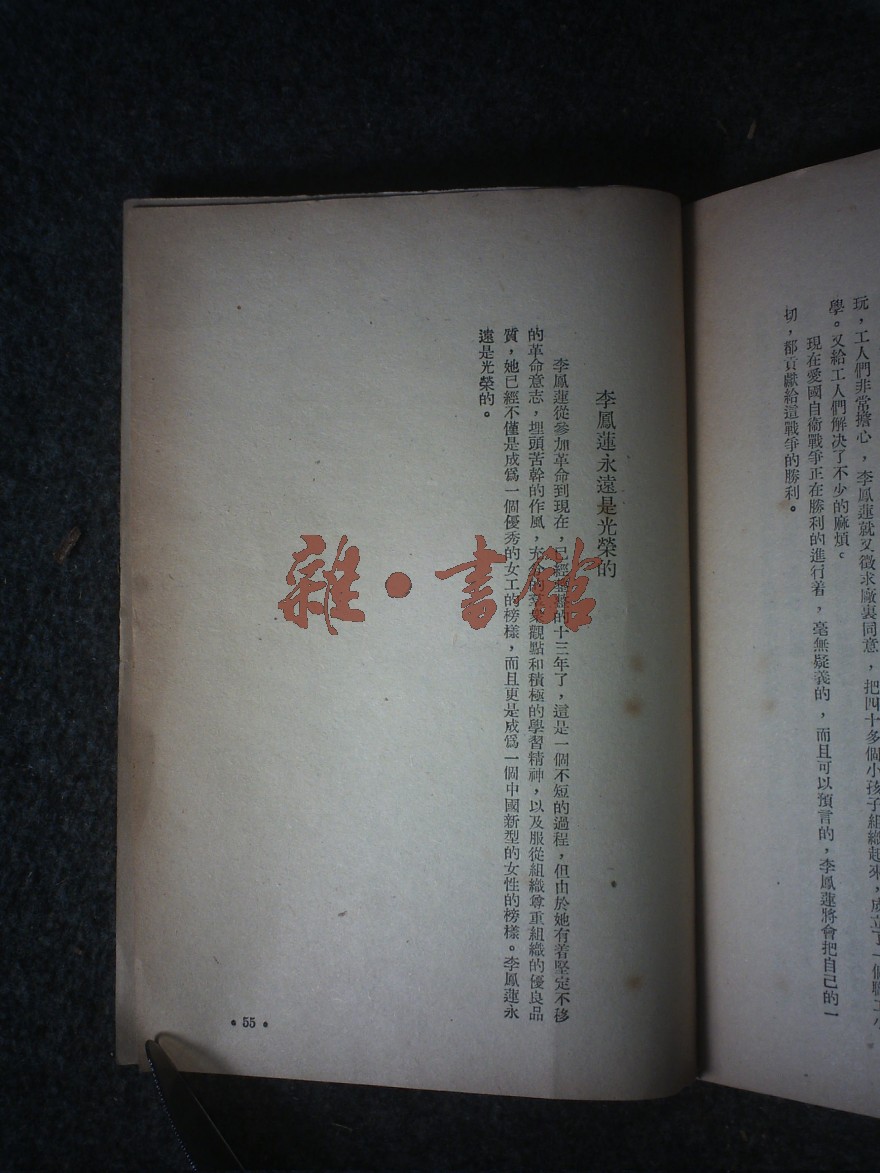 玩，工人們非常擔心，李鳳蓮就又徵求廠裏同意，把四十多個小孩子組織起來，成立了一個職工小
學。又給工人們解決了不少的麻煩。
現在愛國自衛戰爭正在勝利的進行着，毫無疑義的，而且可以預言的，李鳳蓮將會把自己的一
切，都貢獻給這戰爭的勝利。
李鳳蓮永遠是光榮的
李鳳蓮從參加革命到現在，已經整整的十三年了，這是一個不短的過程，但由於她有着堅定不移
的革命意志，埋頭苦幹的作風，充分的羣衆觀點和積極的學習精神，以及服從組織尊重組織的優良品
質，她已經不僅是成爲一個優秀的女工的榜樣，而且更是成爲一個中國新型的女性的榜樣。李鳳蓮永
遠是光榮的。
• 55 •
雜·書館